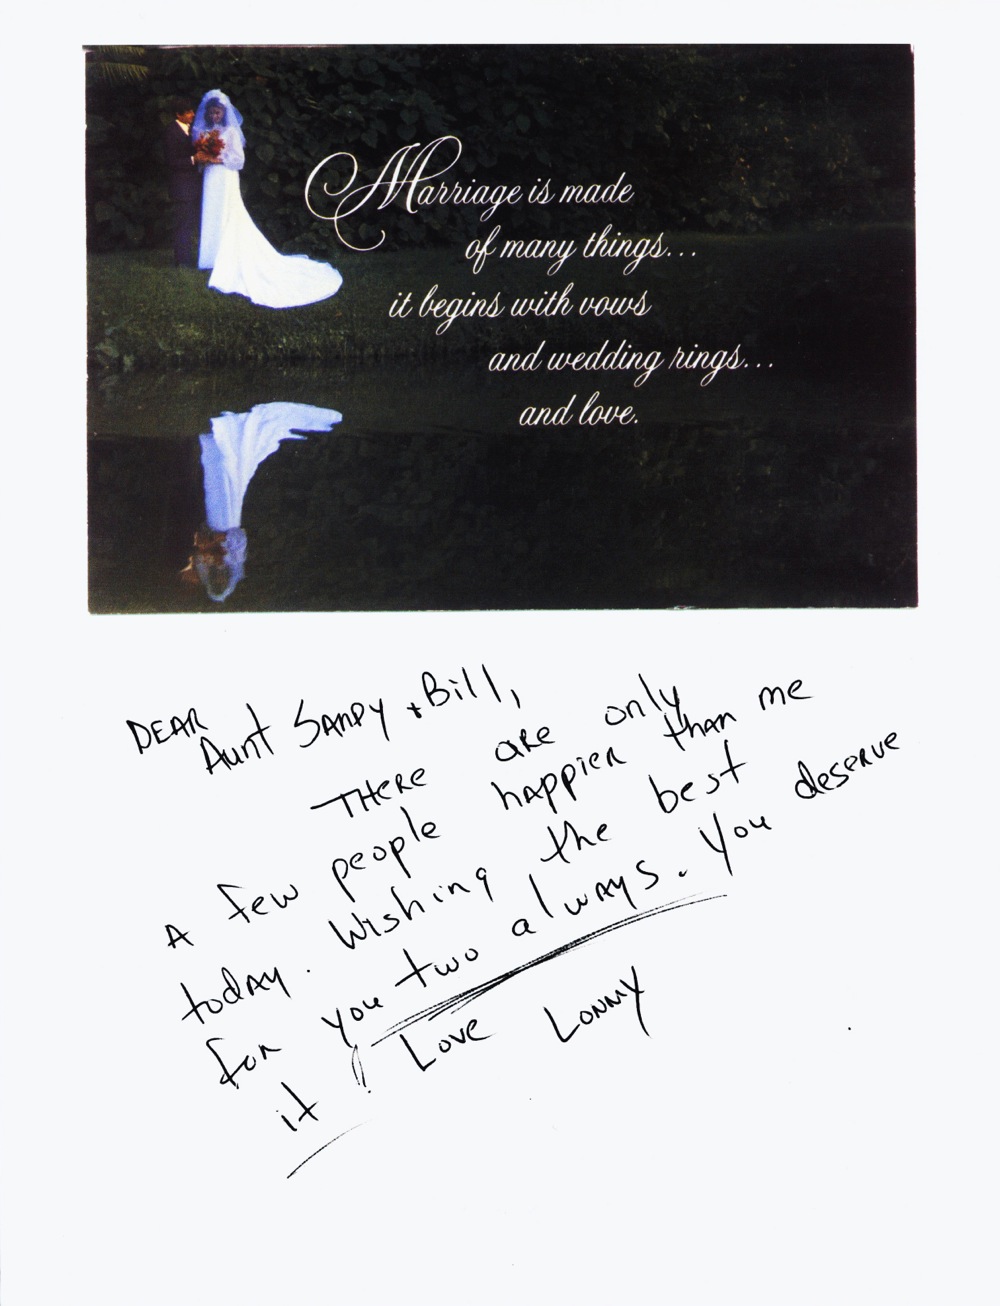 Marriage is made
of many things...
it begins with vows
and wedding rings...
and love.
DEAR
Aunt SANDY + Bill,
THERE are only
A few people happier than me
today. Wishing the best
for you two always. You deserve
it! Love Lonny